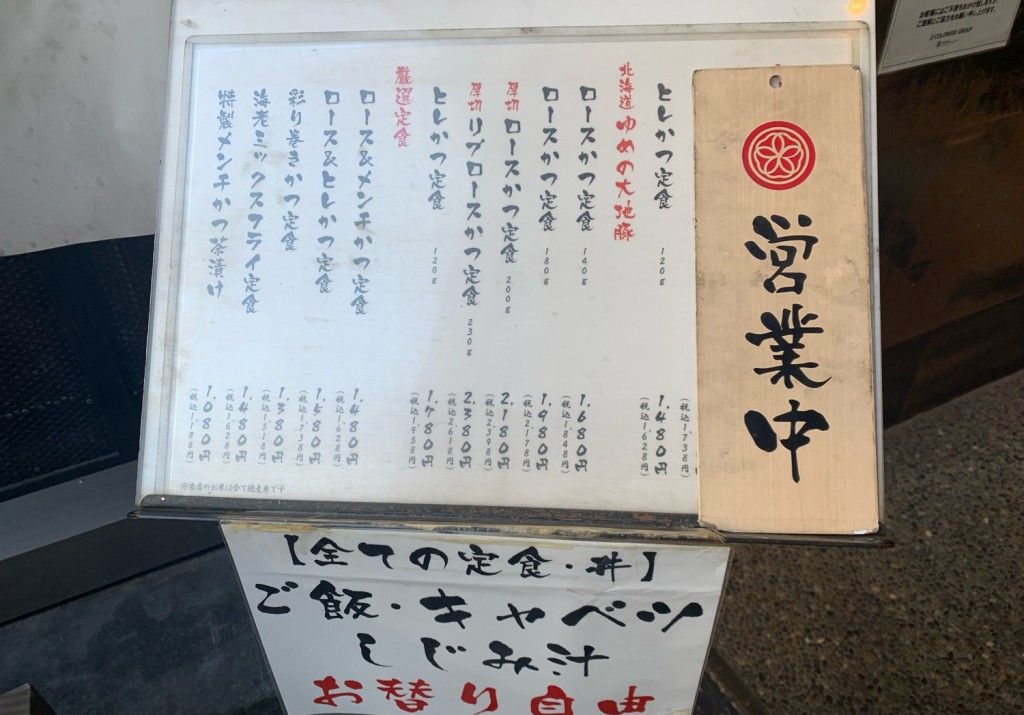 営業中
(税込1,738円)
ヒレかつ定食 120g 1,480円
(税込1,628円)
北海道 ゆめの大地豚
ロースかつ定食 140g 1,680円
(税込1,848円)
ロースかつ定食 180g 1,980円
(税込2,178円)
厚切 ロースかつ定食 200g 2,180円
(税込2,398円)
厚切 リブロースかつ定食 230g 2,380円
(税込2,618円)
ヒレかつ定食 120g 1,780円
(税込1,958円)
厳選定食
ロース&メンチかつ定食 1,480円
(税込1,628円)
ロース&ヒレかつ定食 1,580円
(税込1,738円)
彩り巻きかつ定食 1,380円
(税込1,518円)
海老ミックスフライ定食 1,480円
(税込1,628円)
特製メンチかつ茶漬け 1,080円
(税込1,188円)
※当店のお米は全て国産米です
【全ての定食・丼】
ご飯・キャベツ
しじみ汁
お替り自由
COLOWIDE GROUP